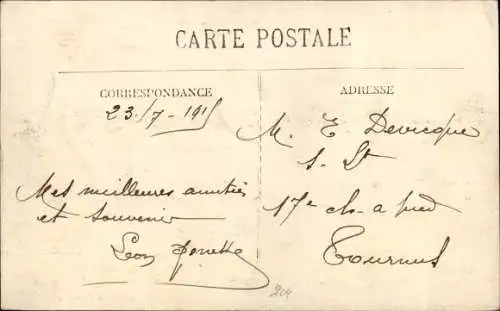 CARTE POSTALE
CORRESPONDANCE
23/7-1915
Mes meilleures amitiés
et souvenir
Léon
ADRESSE
M. E. Devicque
s. Lt
17e ch. a pied
Tournus
204